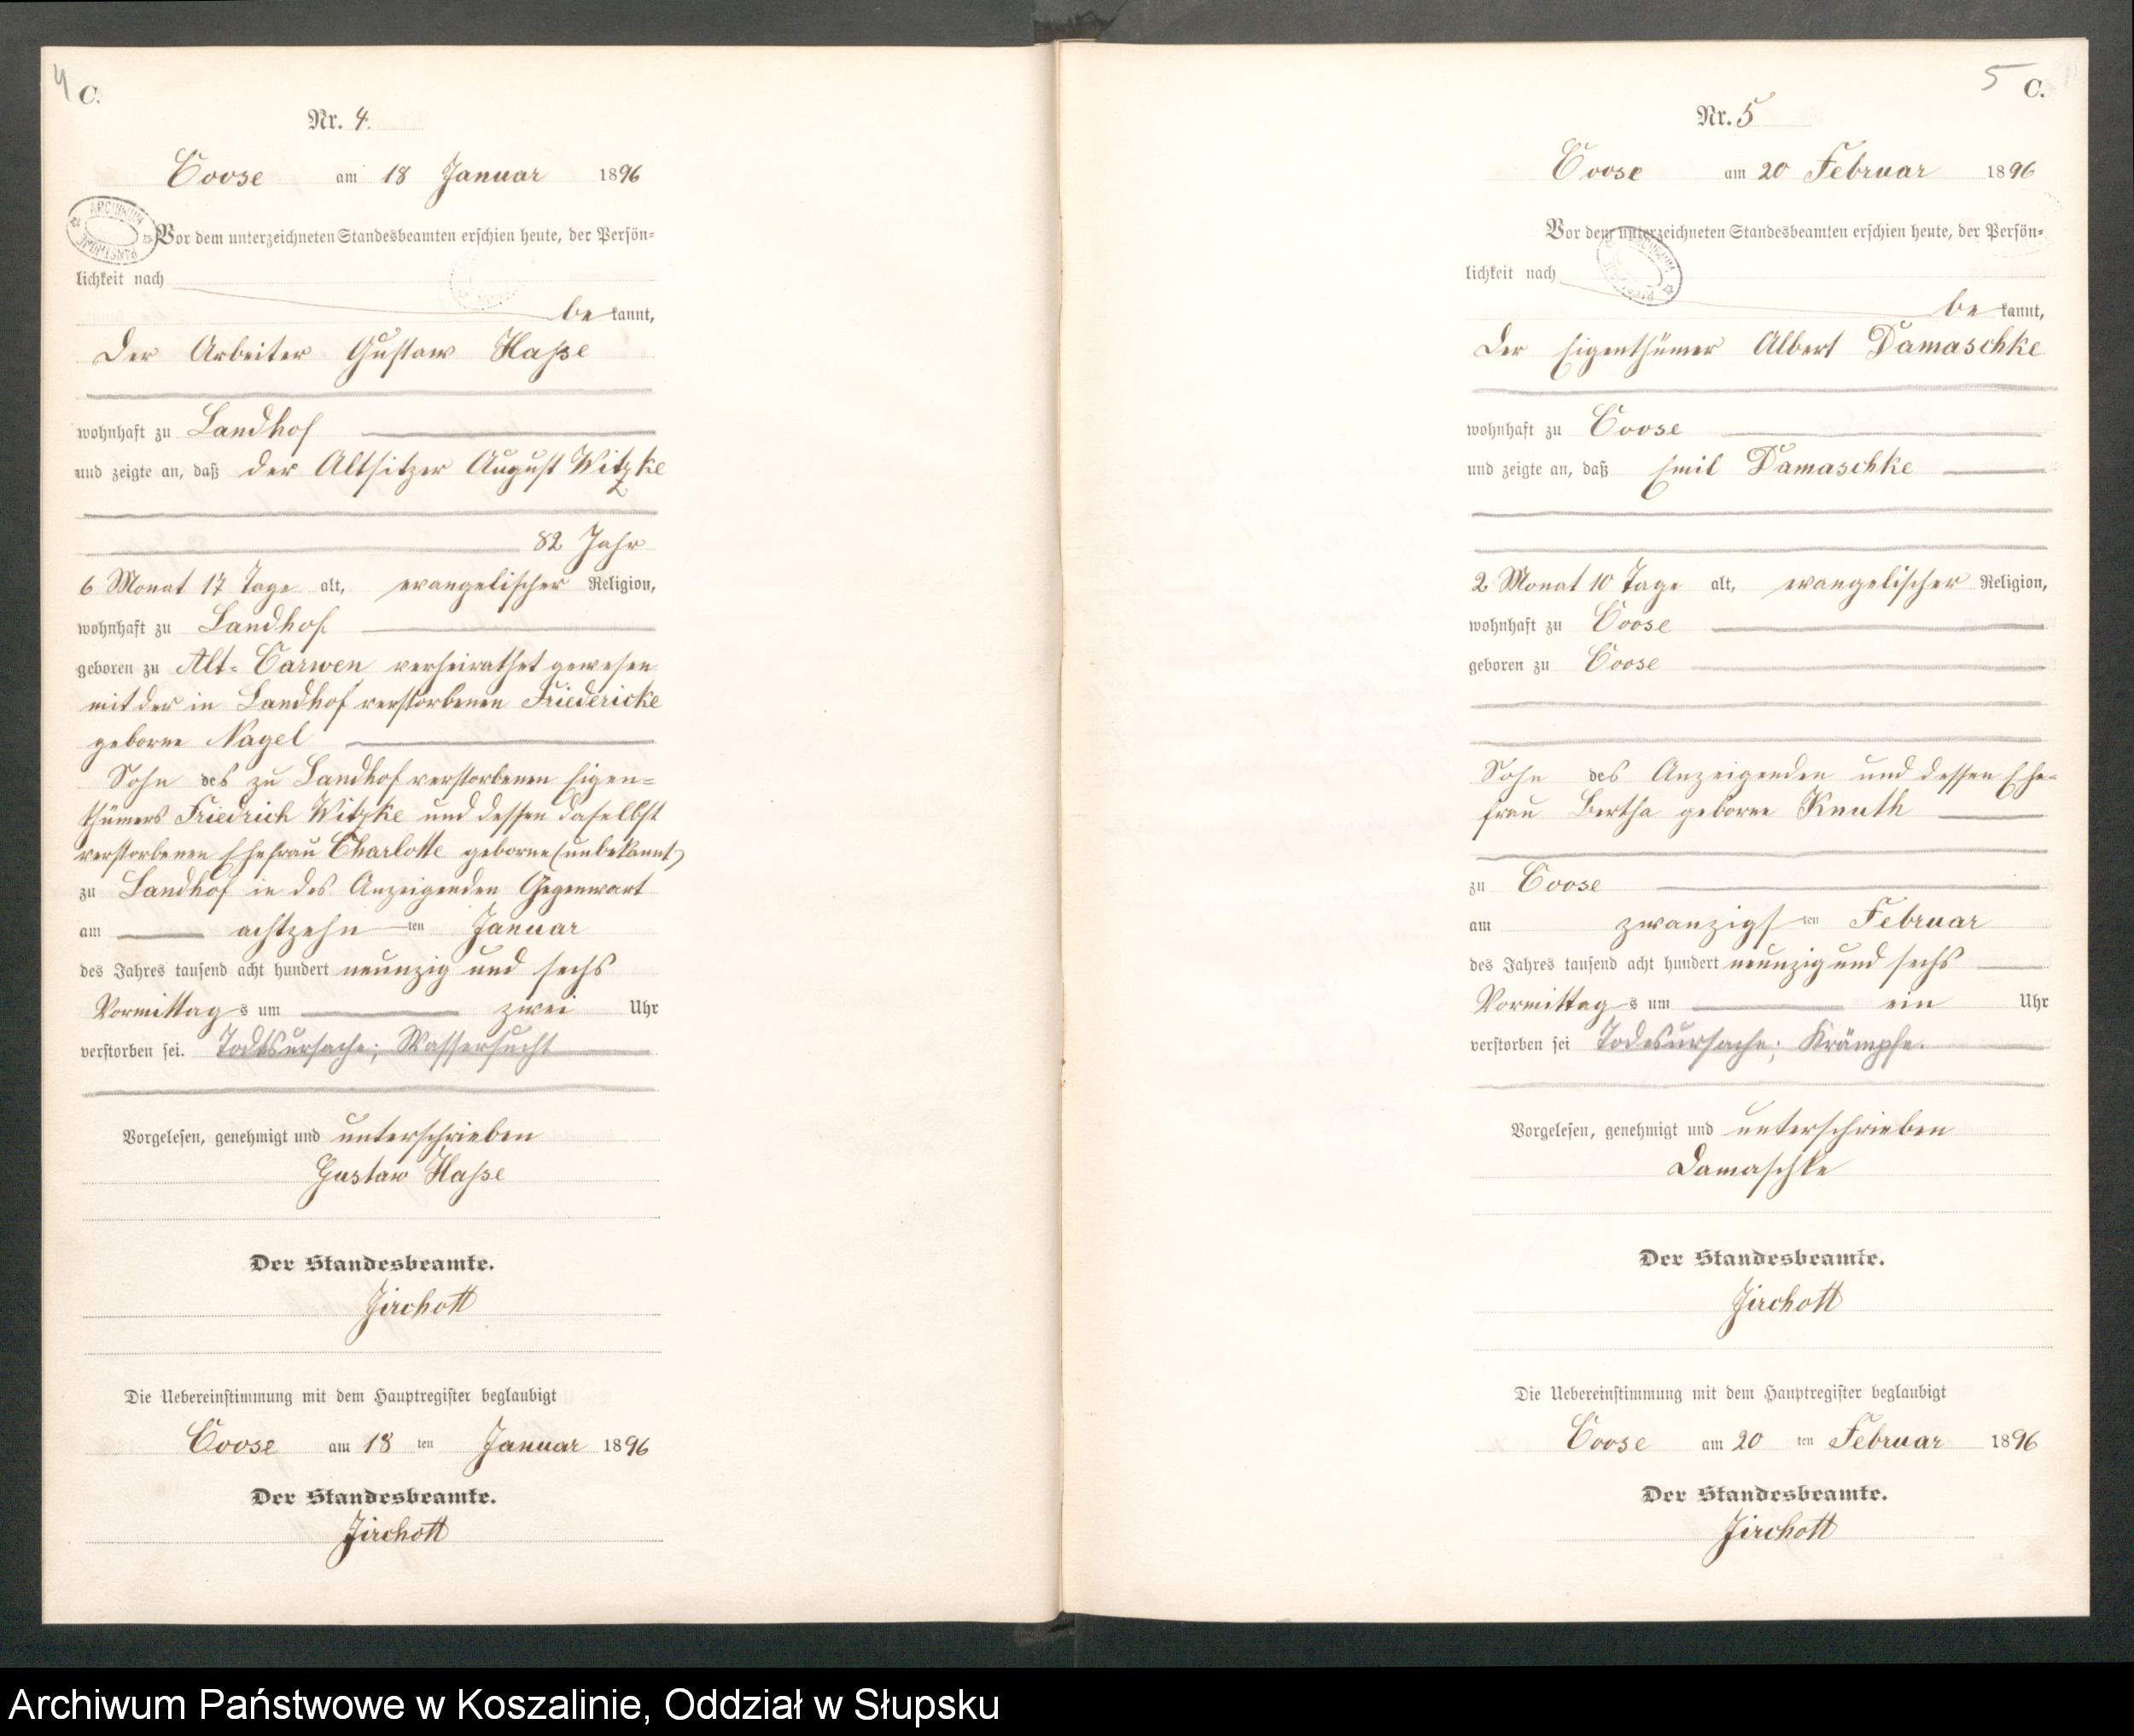 4
C.
Nr. 4.
Coose am 18 Januar 1896
Vor dem unterzeichneten Standesbeamten erschien heute, der Persön=
lichkeit nach
be kannt,
der Arbeiter Gustaw Haße
wohnhaft zu Landhof
und zeigte an, daß der Altsitzer August Witzke
82 Jahr
6 Monat 17 Tage alt, evangelischer Religion,
wohnhaft zu Landhof
geboren zu Alt-Carwen verheirathet gewesen
mit der in Landhof verstorbenen Friedericke
geborne Nagel
Sohn des zu Landhof verstorbenen Eigen=
thümers Friedrich Witzke und dessen daselbst
verstorbenen Ehefrau Charlotte geborne (unbekannt)
zu Landhof in des Anzeigenden Gegenwart
am achtzehn ten Januar
des Jahres tausend acht hundert neunzig und sechs
Vormittag s um zwei Uhr
verstorben sei. Todtsursache; Wassersucht
Vorgelesen, genehmigt und unterschrieben
Gustaw Haße
Der Standesbeamte.
Jirchott
Die Uebereinstimmung mit dem Hauptregister beglaubigt
Coose am 18 ten Januar 1896
Der Standesbeamte.
Jirchott
5 C.
Nr. 5
Coose am 20 Februar 1896
Vor dem unterzeichneten Standesbeamten erschien heute, der Persön=
lichkeit nach
be kannt,
der Eigenthümer Albert Damaschke
wohnhaft zu Coose
und zeigte an, daß Emil Damaschke
2 Monat 10 Tage alt, evangelischer Religion,
wohnhaft zu Coose
geboren zu Coose
Sohn des Anzeigenden und dessen Ehe=
frau Bertha geborne Knuth
zu Coose
am zwanzigs ten Februar
des Jahres tausend acht hundert neunzig und sechs
Vormittag s um ein Uhr
verstorben sei Todesursache; Krämpfe.
Vorgelesen, genehmigt und unterschrieben
Damaschke
Der Standesbeamte.
Jirchott
Die Uebereinstimmung mit dem Hauptregister beglaubigt
Coose am 20 ten Februar 1896
Der Standesbeamte.
Jirchott
Archiwum Państwowe w Koszalinie, Oddział w Słupsku